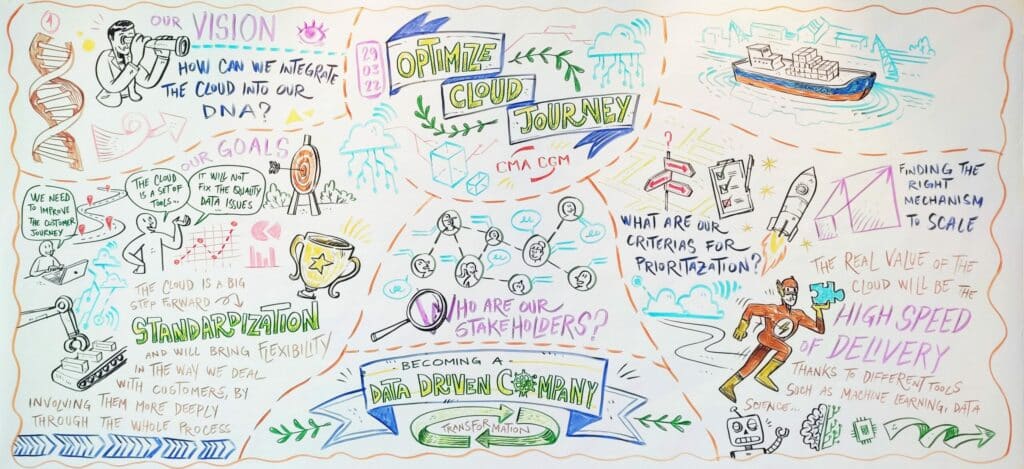 1
OUR VISION
HOW CAN WE INTEGRATE
THE CLOUD INTO OUR
DNA?
29
03
22
OPTIMIZE
CLOUD
JOURNEY
CMA CGM
OUR GOALS
WE NEED
TO IMPROVE
THE CUSTOMER
JOURNEY
THE CLOUD
IS A SET OF
TOOLS...
IT WILL NOT
FIX THE QUALITY
DATA ISSUES
THE CLOUD IS A BIG
STEP FORWARD
STANDARDIZATION
AND WILL BRING FLEXIBILITY
IN THE WAY WE DEAL
WITH CUSTOMERS, BY
INVOLVING THEM MORE DEEPLY
THROUGH THE WHOLE PROCESS
WHO ARE OUR
STAKEHOLDERS?
BECOMING A
DATA DRIVEN COMPANY
TRANSFORMATION
?
WHAT ARE OUR
CRITERIAS FOR
PRIORITAZATION?
FINDING THE
RIGHT
MECHANISM
TO SCALE
THE REAL VALUE OF THE
CLOUD WILL BE THE
HIGH SPEED
OF DELIVERY
THANKS TO DIFFERENT TOOLS
SUCH AS MACHINE LEARNING, DATA
SCIENCE...